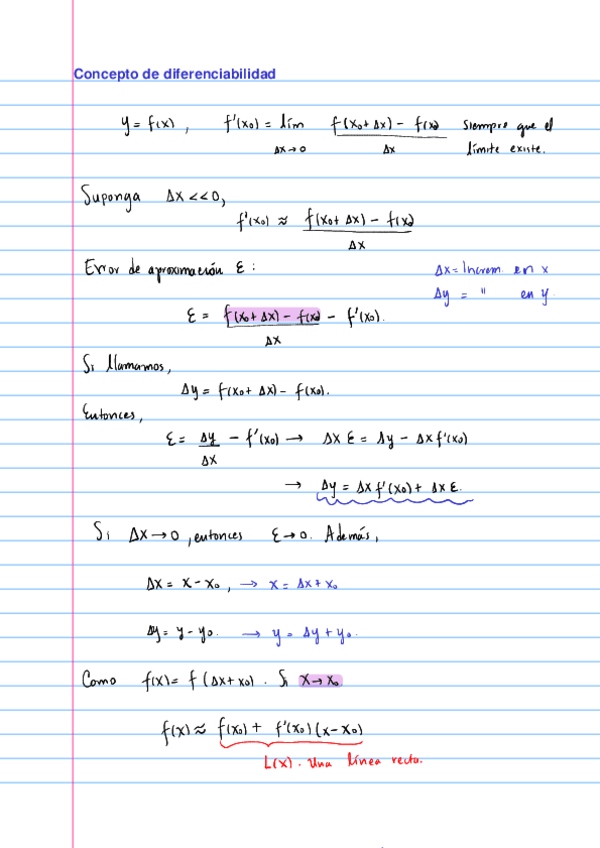 Concepto de diferenciabilidad
y = f(x), f'(x₀) = lím_{Δx→0} (f(x₀+Δx) − f(x₀))/Δx siempre que el
límite existe.
Suponga Δx << 0,
f'(x₀) ≈ (f(x₀+Δx) − f(x₀))/Δx
Error de aproximación ε :
Δx = Increm. en x
Δy = " en y
ε = (f(x₀+Δx) − f(x₀))/Δx − f'(x₀).
Si llamamos,
Δy = f(x₀+Δx) − f(x₀).
Entonces,
ε = Δy/Δx − f'(x₀) → Δx ε = Δy − Δx f'(x₀)
→ Δy = Δx f'(x₀) + Δx ε.
Si Δx → 0, entonces ε → 0. Además,
Δx = x − x₀, → x = Δx + x₀
Δy = y − y₀. → y = Δy + y₀.
Como f(x) = f(Δx + x₀). Si x → x₀
f(x) ≈ f(x₀) + f'(x₀)(x − x₀)
L(x). Una línea recta.